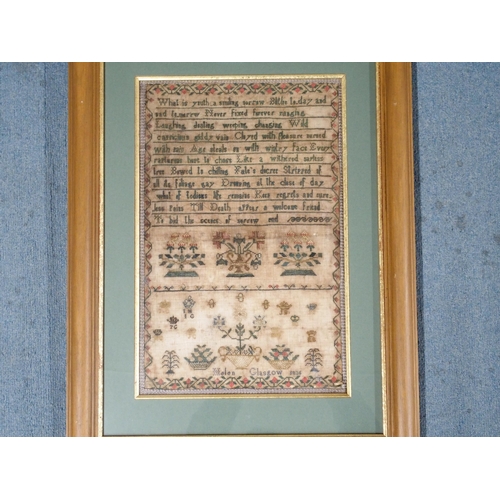 What is youth a smiling sorrow Blithe to day and
sad to morrow Never fixed forever ranging
Laughing doating weeping changing Wild
capricious giddy vain Cloyed with pleasure nursed
with pain Age steals on with wintry face Every
rapturous hope to chase Like a withered sapless
tree Bowed to chilling Fate's decree Stripped of
all its foliage gay Drooping at the close of day
what of tedious life remains Keen regrets and
Till Death appears a welcome friend
To bid the scenes of sorrow end
Helen Glasgow